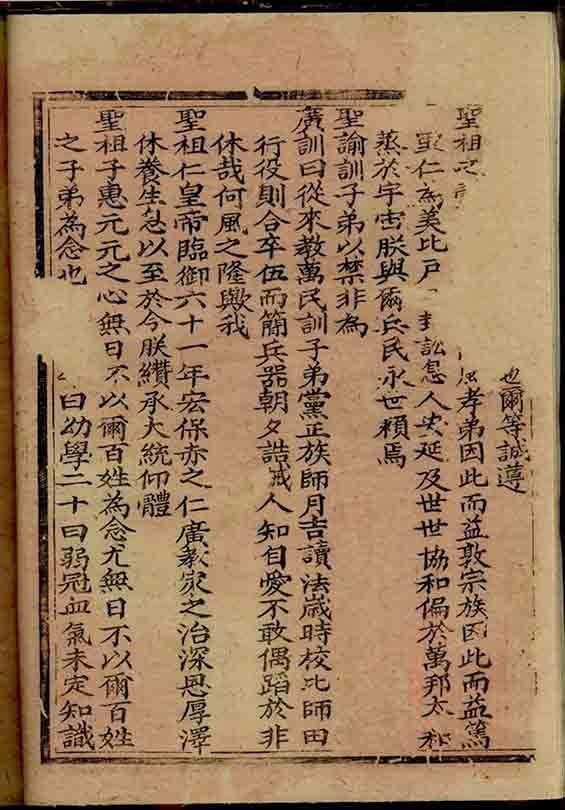 也爾等誠遵
聖祖之 孝弟因此而益敦宗族因此而益篤
里仁為美比戶 訟息人安延及世世協和偏於萬邦太和
蒸於宇宙朕與爾兵民永世賴焉
聖諭訓子弟以禁非為
廣訓曰從來教萬民訓子弟黨正族師月吉讀法歲時校比師田
行役則合卒伍而簡兵器朝夕誥戒人知自愛不敢偶蹈於非
休哉何風之隆歟我
聖祖仁皇帝臨御六十一年宏保赤之仁廣教家之治深恩厚澤
休養生息以至於今朕纘承大統仰體
聖祖子惠元元之心無日不以爾百姓為念尤無日不以爾百姓
之子弟為念也 曰幼學二十曰弱冠血氣未定知識